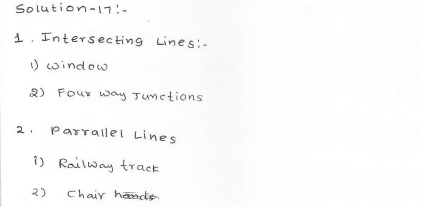 Solution-17:-
1. Intersecting Lines:-
1) window
2) Four way Junctions
2. Parrallel Lines
i) Railway track
2) Chair hands